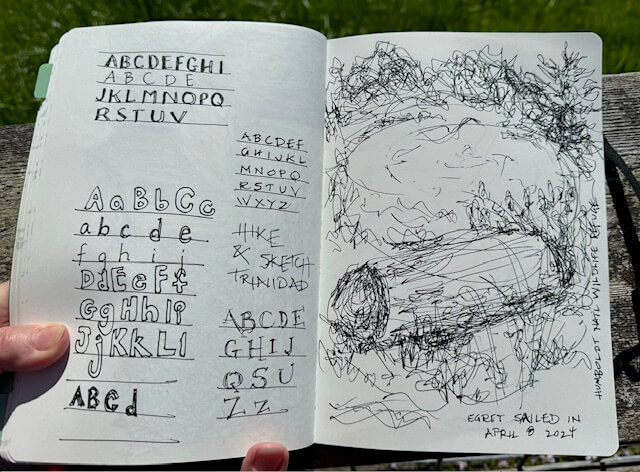 ABCDEFGHI
ABCDE
JKLMNOPQ
RSTUV
AaBbCc
abcde
fghij
DdEeFf
GgHhIi
JjKkLl
ABCd
ABCDEF
GHIJKL
MNOPQ
RSTUV
WXYZ
HIKE
& SKETCH
TRINIDAD
ABCDE
GHIJ
QSU
Zz
EGRET SAILED IN
APRIL 8 2024
HUMBOLDT NAT'L WILDLIFE REFUGE